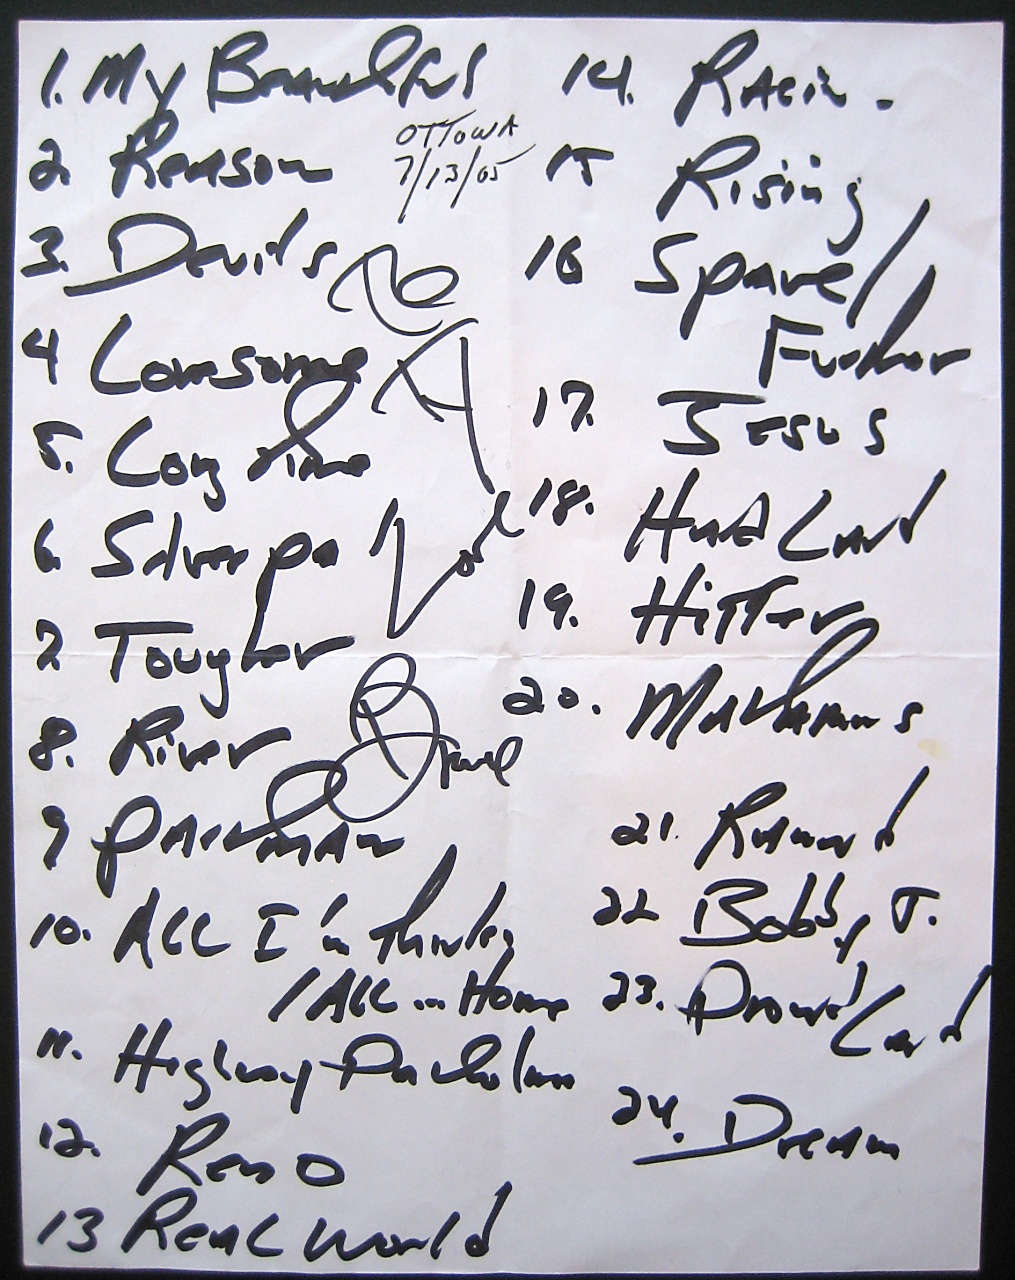 1. My Beautiful
OTTOWA
7/13/05
2. Reason
3. Devils
4 Lonesome
5. Long time
6. Silver pa
7 Tougher
8. River
9 Part man
10. All I'm thinkin
/ All ... Home
11. Highway Patrolman
12. Reno
13 Real World
14. Racin.
15 Rising
16 Spare /
Further
17. Jesus
18. Hard Land
19. Hitter
20. Matamoros
21. Ruined
22 Bobby J.
23. Promised Land
24. Dream